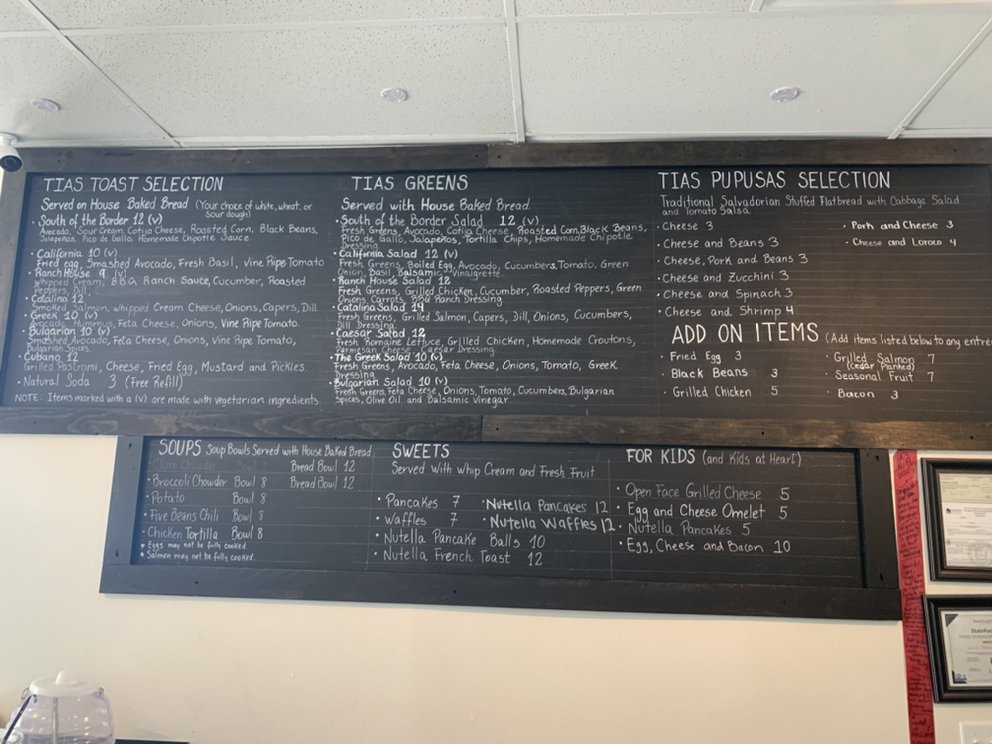 TIAS TOAST SELECTION
Served on House Baked Bread (Your choice of white, wheat, or
sour dough)
• South of the Border 12 (v)
Avocado, Sour Cream, Cotija Cheese, Roasted Corn, Black Beans,
Jalapeños, Pico de Gallo, Homemade Chipotle Sauce.
• California 10 (v)
Fried egg, Smashed Avocado, Fresh Basil, Vine Ripe Tomato
• Ranch House 9 (v)
Whipped Cream, BBQ Ranch Sauce, Cucumber, Roasted
Peppers, Dill
• Catalina 12
Smoked Salmon, Whipped Cream Cheese, Onions, Capers, Dill
Greek 10 (v)
Avocado, Hummus, Feta Cheese, Onions, Vine Ripe Tomato.
• Bulgarian 10 (v)
Smashed Avocado, Feta Cheese, Onions, Vine Ripe Tomato,
Bulgarian Spices.
• Cubano 12
Grilled Pastrami, Cheese, Fried Egg, Mustard and Pickles.
• Natural Soda 3 (Free Refill)
NOTE: Items marked with a (v) are made with vegetarian ingredients.
TIAS GREENS
Served with House Baked Bread
• South of the Border Salad 12 (v)
Fresh Greens, Avocado, Cotija Cheese, Roasted Corn, Black Beans,
Pico de Gallo, Jalapeños, Tortilla Chips, Homemade Chipotle
Dressing
• California Salad 12 (v)
Fresh Greens, Boiled Egg, Avocado, Cucumbers, Tomato, Green
Onion, Basil, Balsamic Vinaigrette
• Ranch House Salad 12
Fresh Greens, Grilled Chicken, Cucumber, Roasted Peppers, Green
Onions, Carrots, BBQ Ranch Dressing
• Catalina Salad 14
Fresh Greens, Grilled Salmon, Capers, Dill, Onions, Cucumbers,
Dill Dressing
• Caesar Salad 12
Fresh Romaine Lettuce, Grilled Chicken, Homemade Croutons,
Parmesan Cheese, Caesar Dressing
• The Greek Salad 10 (v)
Fresh Greens, Avocado, Feta Cheese, Onions, Tomato, Greek
Dressing
• Bulgarian Salad 10 (v)
Fresh Greens, Feta Cheese, Onions, Tomato, Cucumbers, Bulgarian
Spices, Olive Oil and Balsamic Vinegar
TIAS PUPUSAS SELECTION
Traditional Salvadorian Stuffed Flatbread with Cabbage Salad
and Tomato Salsa
• Cheese 3
• Cheese and Beans 3
• Cheese, Pork and Beans 3
• Cheese and Zucchini 3
• Cheese and Spinach 3
• Cheese and Shrimp 4
• Pork and Cheese 3
• Cheese and Loroco 4
ADD ON ITEMS (Add items listed below to any entree
• Fried Egg 3
• Black Beans 3
• Grilled Chicken 5
• Grilled Salmon 7
(cedar Planked)
• Seasonal Fruit 7
• Bacon 3
SOUPS Soup Bowls Served with House Baked Bread
Clam Chowder Bowl 8 Bread Bowl 12
• Broccoli Chowder Bowl 8 Bread Bowl 12
• Potato Bowl 8
• Five Beans Chili Bowl 8
• Chicken Tortilla Bowl 8
* Eggs may not be fully cooked.
* Salmon may not be fully cooked.
SWEETS
Served With Whip Cream and Fresh Fruit
• Pancakes 7
• Waffles 7
• Nutella Pancake Balls 10
• Nutella French Toast 12
• Nutella Pancakes 12
• Nutella Waffles 12
FOR KIDS (and Kids at Heart)
• Open Face Grilled Cheese 5
• Egg and Cheese Omelet 5
• Nutella Pancakes 5
• Egg, Cheese and Bacon 10